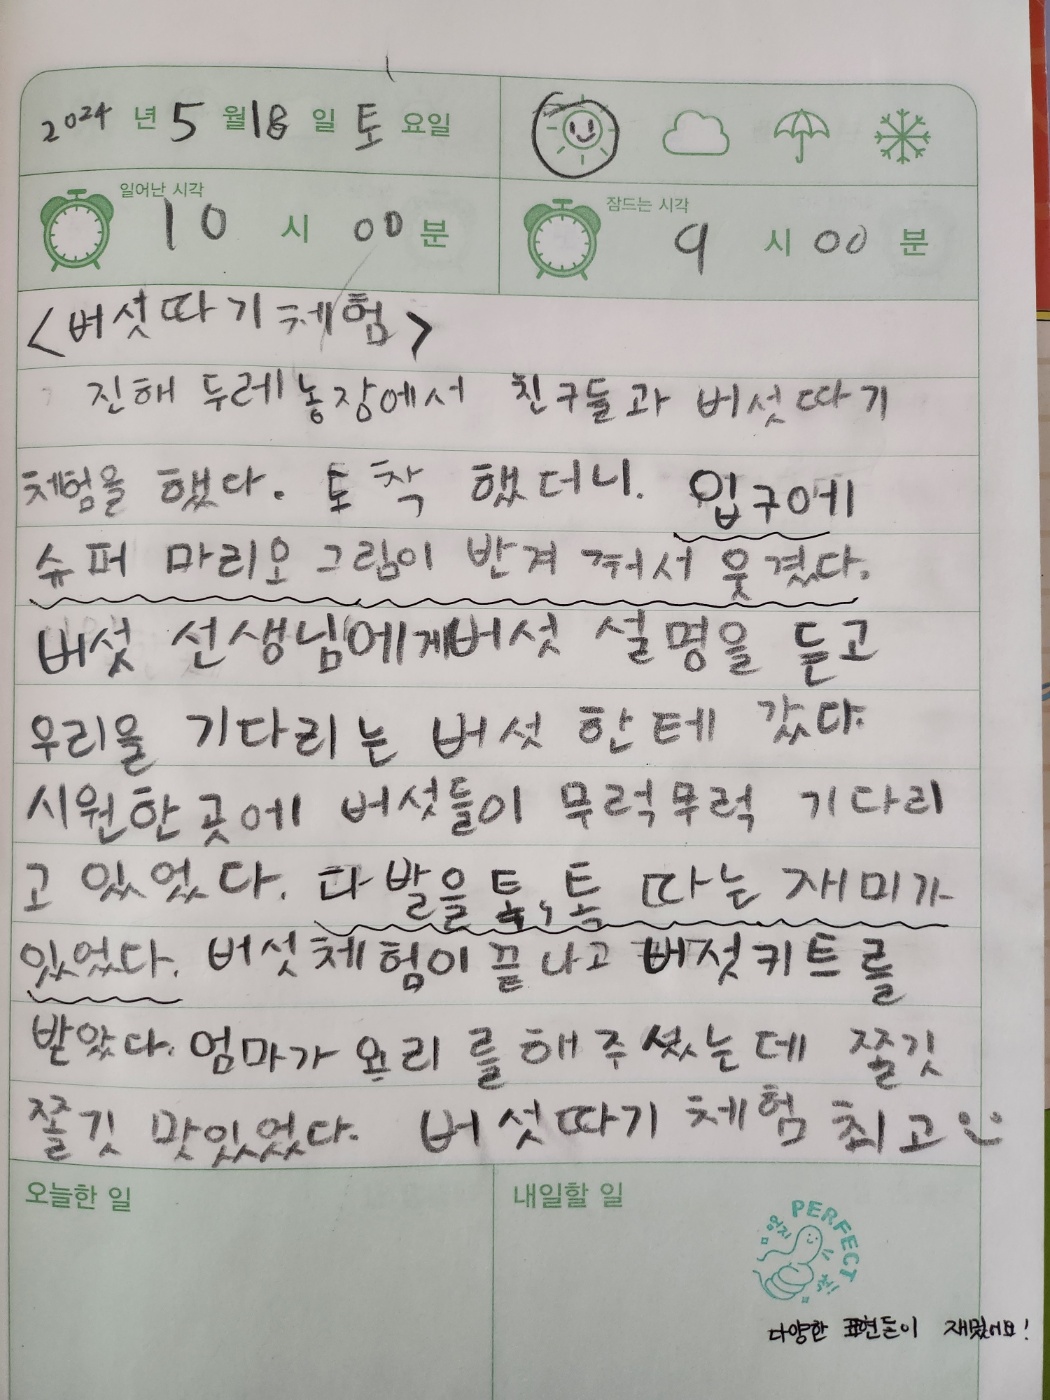 2024 년 5 월 18 일 토 요일
일어난 시각 10 시 00 분
잠드는 시각 9 시 00 분
<버섯따기 체험>
진해 두레농장에서 친구들과 버섯따기
체험을 했다. 도착 했더니. 입구에
슈퍼 마리오 그림이 반겨 줘서 웃겼다.
버섯 선생님에게버섯 설명을 듣고
우리을 기다리는 버섯 한테 갔다.
시원한 곳에 버섯들이 무럭무럭 기다리
고 있었다. 다발을 톡, 톡 따는 재미가
있었다. 버섯체험이 끝나고 버섯키트를
받았다. 엄마가 요리를해주셨는데 쫄깃
쫄깃 맛있었다. 버섯따기 체험 최고
오늘한 일
내일할 일
PERFECT
엄지
척!
다양한 표현들이 재밌어요!